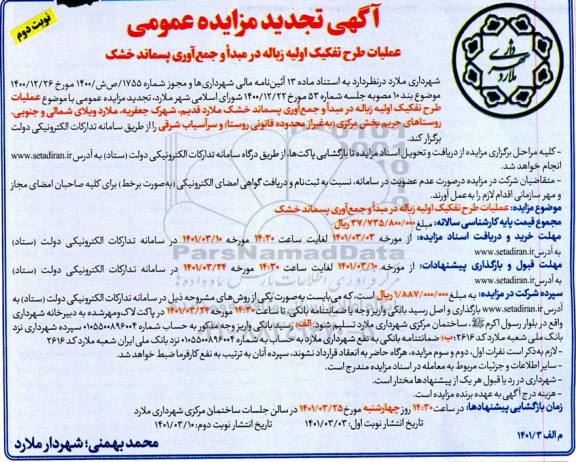 نوبت دوم
آگهی تجدید مزایده عمومی
عملیات طرح تفکیک اولیه زباله در مبدأ و جمع‌آوری پسماند خشک
شهرداری ملارد
شهرداری ملارد درنظردارد به استناد ماده ۱۳ آئین‌نامه مالی شهرداری‌ها و مجوز شماره ۱۷۵۵/ص‌ش/۱۴۰۰ مورخ ۱۴۰۰/۱۲/۲۶
موضوع بند ۱۰ مصوبه جلسه شماره ۵۳ مورخ ۱۴۰۰/۱۲/۲۲ شورای اسلامی شهر ملارد، تجدید مزایده عمومی با موضوع عملیات
طرح تفکیک اولیه زباله در مبدأ و جمع‌آوری پسماند خشک ملارد قدیم، شهرک جعفریه، ملارد ویلای شمالی و جنوبی،
روستاهای حریم بخش مرکزی (به‌غیراز محدوده قانونی روستا) و سرآسیاب شرقی را از طریق سامانه تدارکات الکترونیکی دولت
برگزار کند.
- کلیه مراحل برگزاری مزایده از دریافت و تحویل اسناد مزایده تا بازگشایی پاکت‌ها، از طریق درگاه سامانه تدارکات الکترونیکی دولت (ستاد) به آدرس www.setadiran.ir
انجام خواهد شد.
- متقاضیان شرکت در مزایده درصورت عدم عضویت در سامانه، نسبت به ثبت‌نام و دریافت گواهی امضای الکترونیکی (به‌صورت برخط) برای کلیه صاحبان امضای مجاز
و مهر سازمانی اقدام لازم را به‌عمل آورند.
موضوع مزایده: عملیات طرح تفکیک اولیه زباله در مبدأ و جمع‌آوری پسماند خشک
مجموع قیمت پایه کارشناسی سالانه: مبلغ ۳۷/۷۳۵/۸۰۰/۰۰۰ ریال
مهلت خرید و دریافت اسناد مزایده: از مورخه ۱۴۰۱/۰۳/۰۳ لغایت ساعت ۱۴:۳۰ مورخه ۱۴۰۱/۰۳/۱۰ در سامانه تدارکات الکترونیکی دولت (ستاد)
به آدرس www.setadiran.ir
مهلت قبول و بارگذاری پیشنهادات: از مورخه ۱۴۰۱/۰۳/۱۰ لغایت ساعت ۱۴:۳۰ مورخه ۱۴۰۱/۰۳/۲۴ در سامانه تدارکات الکترونیکی دولت (ستاد)
به آدرس www.setadiran.ir
سپرده شرکت در مزایده: به مبلغ ۱/۸۸۷/۰۰۰/۰۰۰ ریال است، که می‌بایست به‌صورت یکی از روش‌های مشروحه ذیل در سامانه تدارکات الکترونیکی دولت (ستاد) به
آدرس www.setadiran.ir بارگذاری و اصل رسید بانکی واریز وجه یا ضمانتنامه بانکی تا ساعت ۱۴:۳۰ مورخه ۱۴۰۱/۰۳/۲۴ در پاکت لاک‌ومهرشده به دبیرخانه شهرداری
واقع در بلوار رسول اکرم ﷺ، ساختمان مرکزی شهرداری ملارد تسلیم شود. الف: رسید بانکی واریز وجه مذکور به حساب شماره ۰۱۰۵۵۰۰۸۹۶۰۰۴ سپرده شهرداری نزد
بانک ملی شعبه ملارد کد ۲۶۱۶؛ ب: ضمانتنامه بانکی به نفع شهرداری ملارد به حساب شماره ۰۱۰۵۵۰۰۸۹۶۰۰۴ نزد بانک ملی ایران شعبه ملارد کد ۲۶۱۶
- لازم به‌ذکر است نفرات اول، دوم و سوم مزایده، هرگاه حاضر به انعقاد قرارداد نشوند، سپرده آنان به ترتیب به نفع کارفرما ضبط خواهد شد.
- سایر اطلاعات و جزئیات مربوط به معامله در اسناد مزایده مندرج است.
- شهرداری در رد یا قبول هر یک از پیشنهادها مختار است.
- هزینه درج آگهی به عهده برنده مزایده است.
زمان بازگشایی پیشنهادها: در ساعت ۱۴:۳۰ روز چهارشنبه مورخ ۱۴۰۱/۰۳/۲۵ در سالن جلسات ساختمان مرکزی شهرداری ملارد
تاریخ انتشار نوبت اول: ۱۴۰۱/۰۳/۰۳ تاریخ انتشار نوبت دوم: ۱۴۰۱/۰۳/۱۰
م الف ۱۴۰۱/۳
محمد بهمنی؛ شهردار ملارد
ParsNamadData